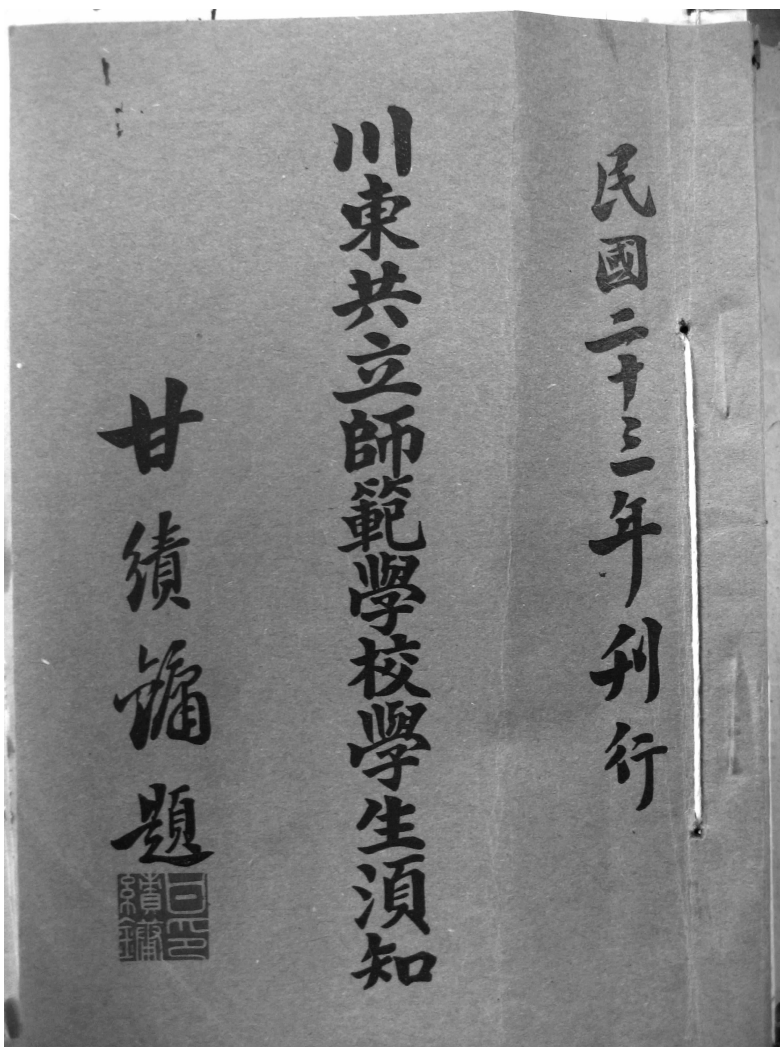 民國二十三年刊行
川東共立師範學校學生須知
甘績鏞題
甘績鏞印